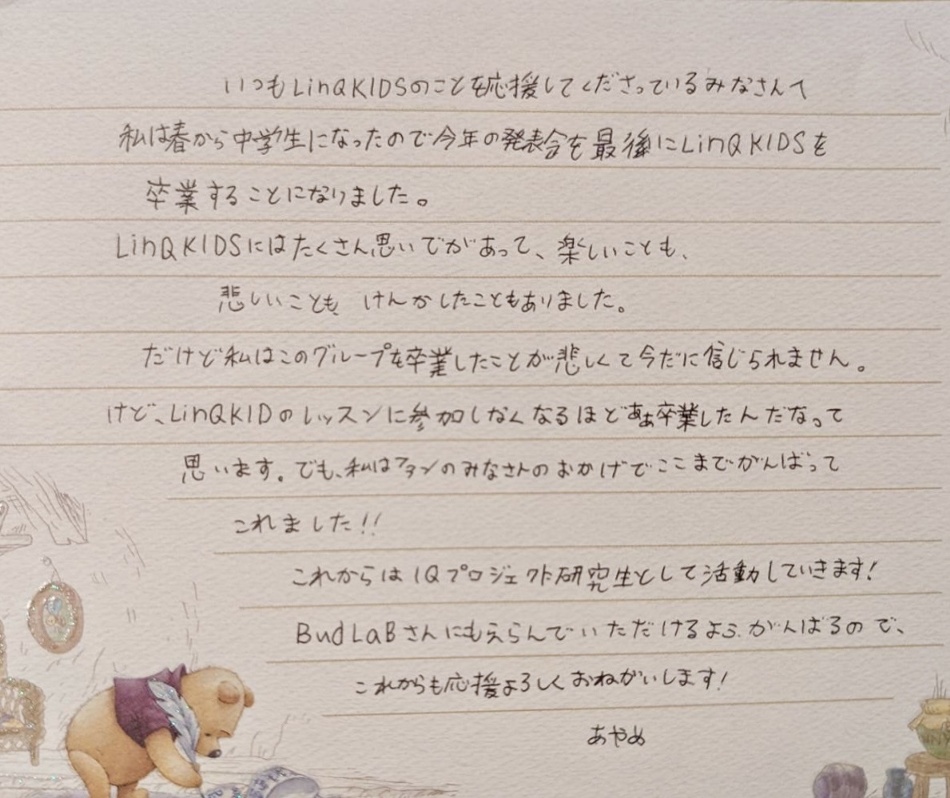 いつもLinQKIDSのことを応援してくださっているみなさんへ
私は春から中学生になったので今年の発表会を最後にLinQKIDSを
卒業することになりました。
LinQKIDSにはたくさん思いでがあって、楽しいことも、
悲しいことも けんかしたこともありました。
だけど私はこのグループを卒業したことが悲しくて今だに信じられません。
けど、LinQKIDのレッスンに参加しなくなるほどあぁ卒業したんだなって
思います。でも、私はファンのみなさんのおかげでここまでがんばって
これました!!
これからはIQプロジェクト研究生として活動していきます!
BudLaBさんにもえらんでいただけるよう がんばるので、
これからも応援よろしくおねがいします!
あやめ